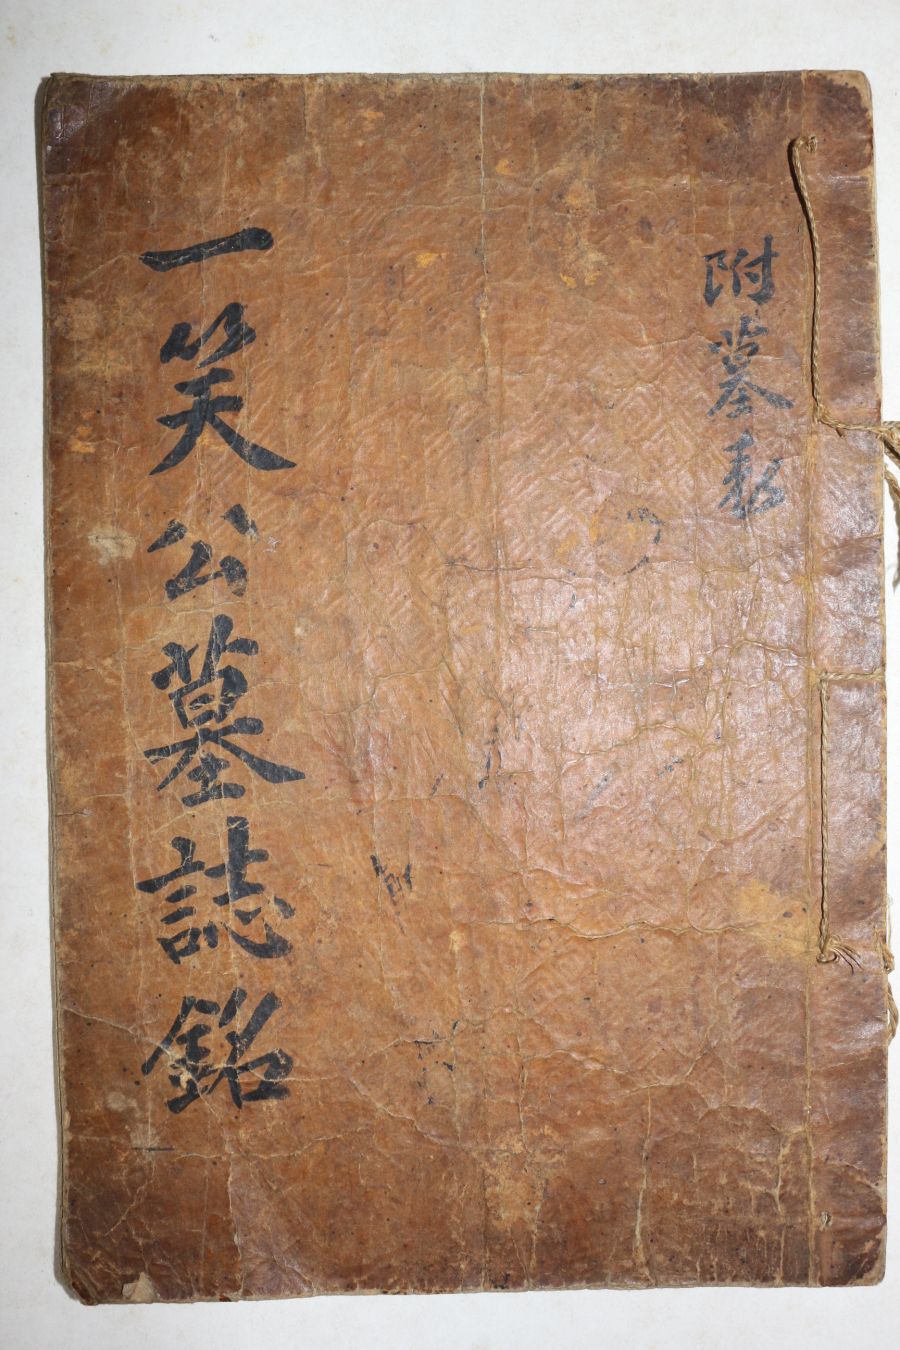 附墓
一笑公墓誌銘